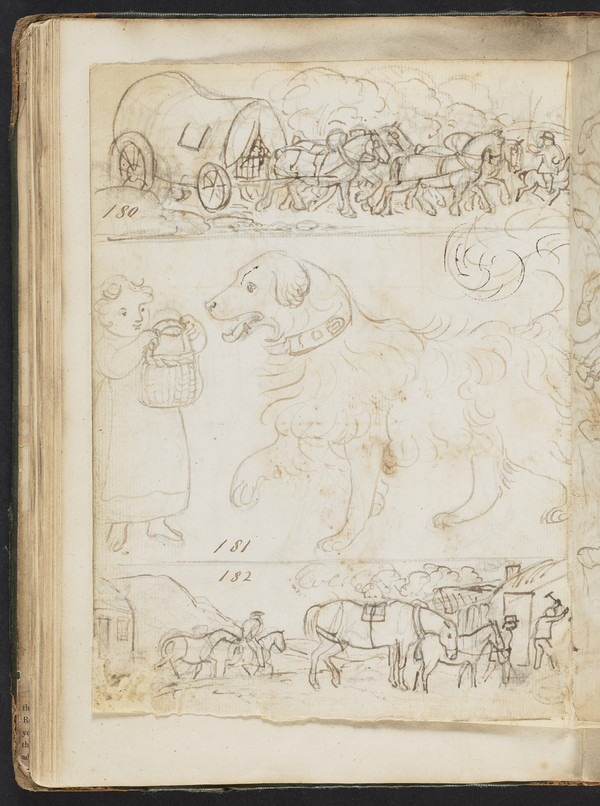 180
181
182